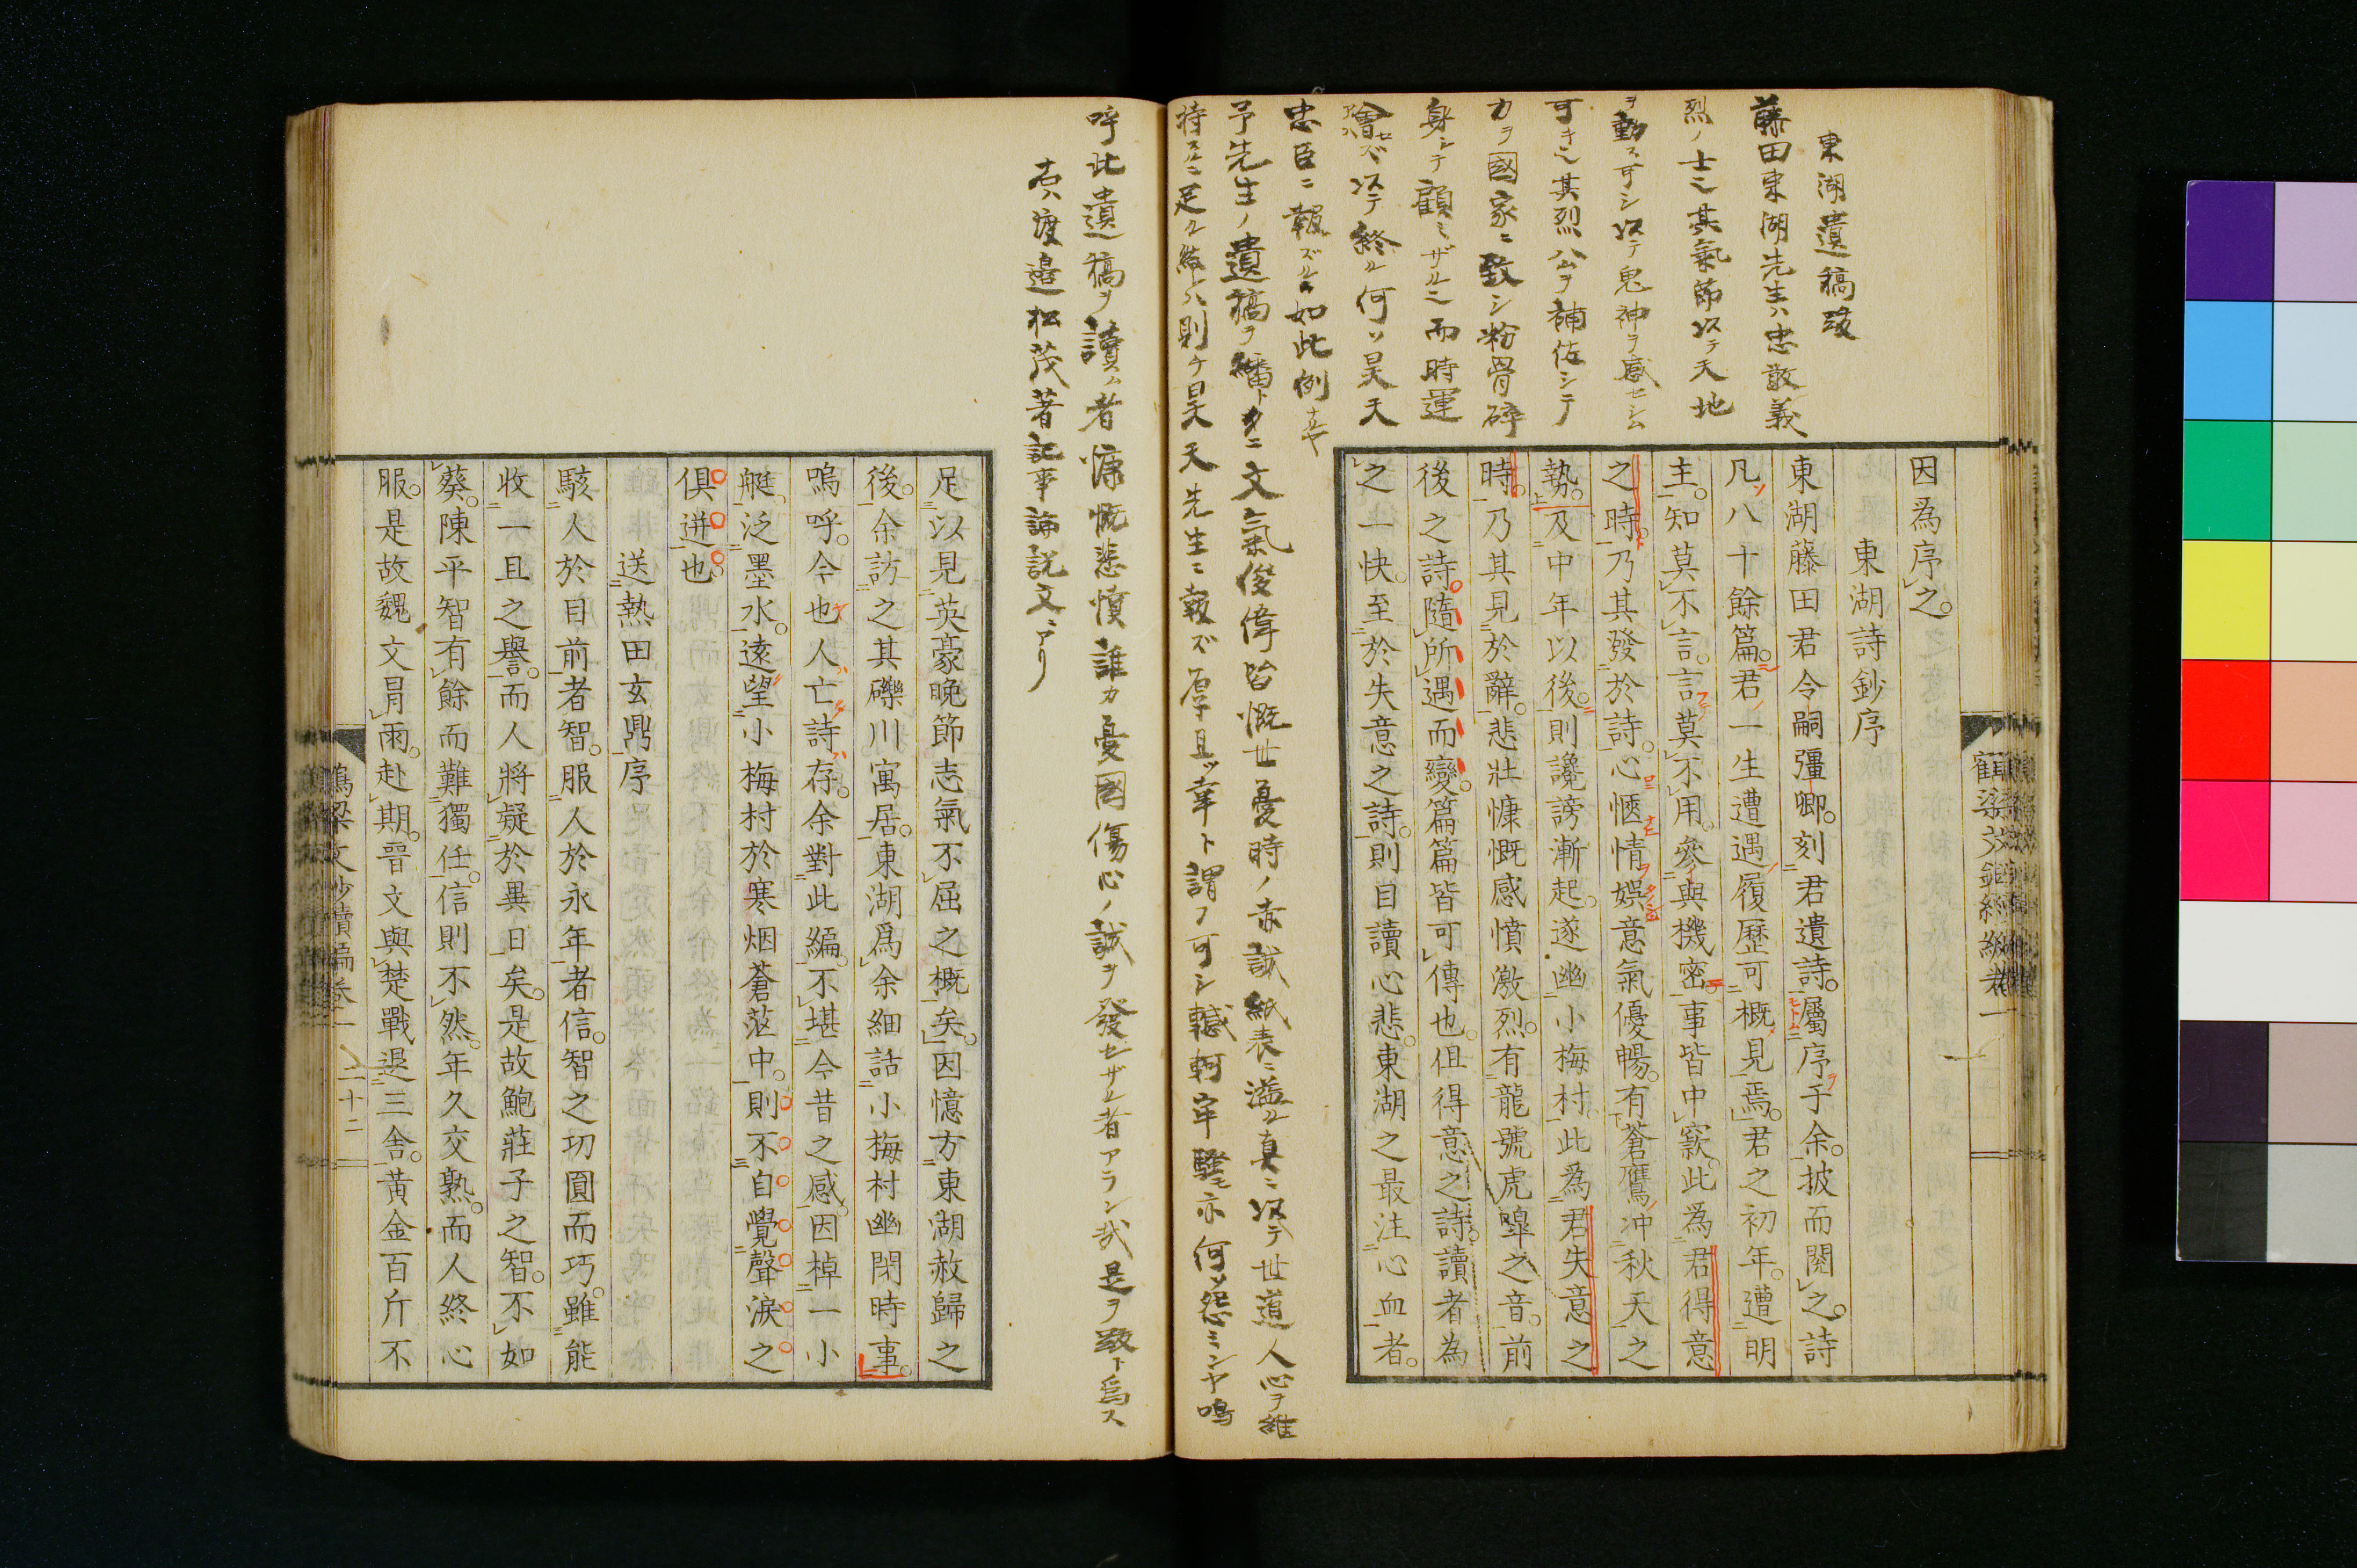 東湖遺稿跋
藤田東湖先生ハ忠敢義
烈ノ士ニ其氣節以テ天地
ヲ動ス可シ以テ鬼神ヲ感セシム
可キニ其烈公ヲ補佐シテ
力ヲ國家ニ致シ粉骨碎
身シテ顧ミザルニ而時運
會セズ以テ終ル何ソ昊天
忠臣ニ報ズル如此例ナルヤ
予先生ノ遺稿ヲ繙トクニ文氣俊偉皆慨世憂時ノ赤誠紙表ニ溢ル真ニ以テ世道人心ヲ維
持スルニ足ル然ハ則チ昊天先生ニ報ズ厚且ッ幸ト謂フ可シ轗軻牢騷モ亦何ソ怨ミンヤ嗚
呼此遺稿ヲ讀ム者慷慨悲憤誰カ憂國傷心ノ誠ヲ發セザル者アラン哉是ヲ跋ト爲ス
右ハ渡邉松茂著記事論説文ニアリ
因爲序之。
東湖詩鈔序
東湖藤田君令嗣彊卿。刻君遺詩。屬序于余。披而閲之。詩
凡八十餘篇。君一生遭遇履歷可概見焉。君之初年。遭明
主。知莫不言。言莫不用。參與機密。事皆中窾。此為君得意
之時。乃其發於詩。心愜情娯。意氣優暢。有蒼鷹冲秋天之
勢。及中年以後。則讒謗漸起。遂幽小梅村。此為君失意之
時。乃其見於辭。悲壯慷慨感憤激烈。有龍號虎嘷之音。前
後之詩。隨所遇而變。篇篇皆可傳也。但得意之詩。讀者為
之一快。至於失意之詩。則目讀心悲。東湖之最注心血者。
足以見英豪晚節志氣不屈之概矣。因憶方東湖赦歸之
後。余訪之其礫川寓居。東湖爲余細話小梅村幽閉時事。
嗚呼。今也人亡詩存。余對此編。不堪今昔之感。因棹一小
艇。泛墨水。遠望小梅村於寒烟蒼茫中。則不自覺聲淚之
俱迸也。
送熱田玄鼎序
駭人於目前者智。服人於永年者信。智之功圓而巧。雖能
收一旦之譽。而人將疑於異日矣。是故鮑莊子之智。不如
葵。陳平智有餘而難獨任。信則不然。年久交熟。而人終心
服。是故魏文冐雨。赴期。晉文與楚戰退三舍。黃金百斤不
鶴梁文鈔續編卷一 二十二